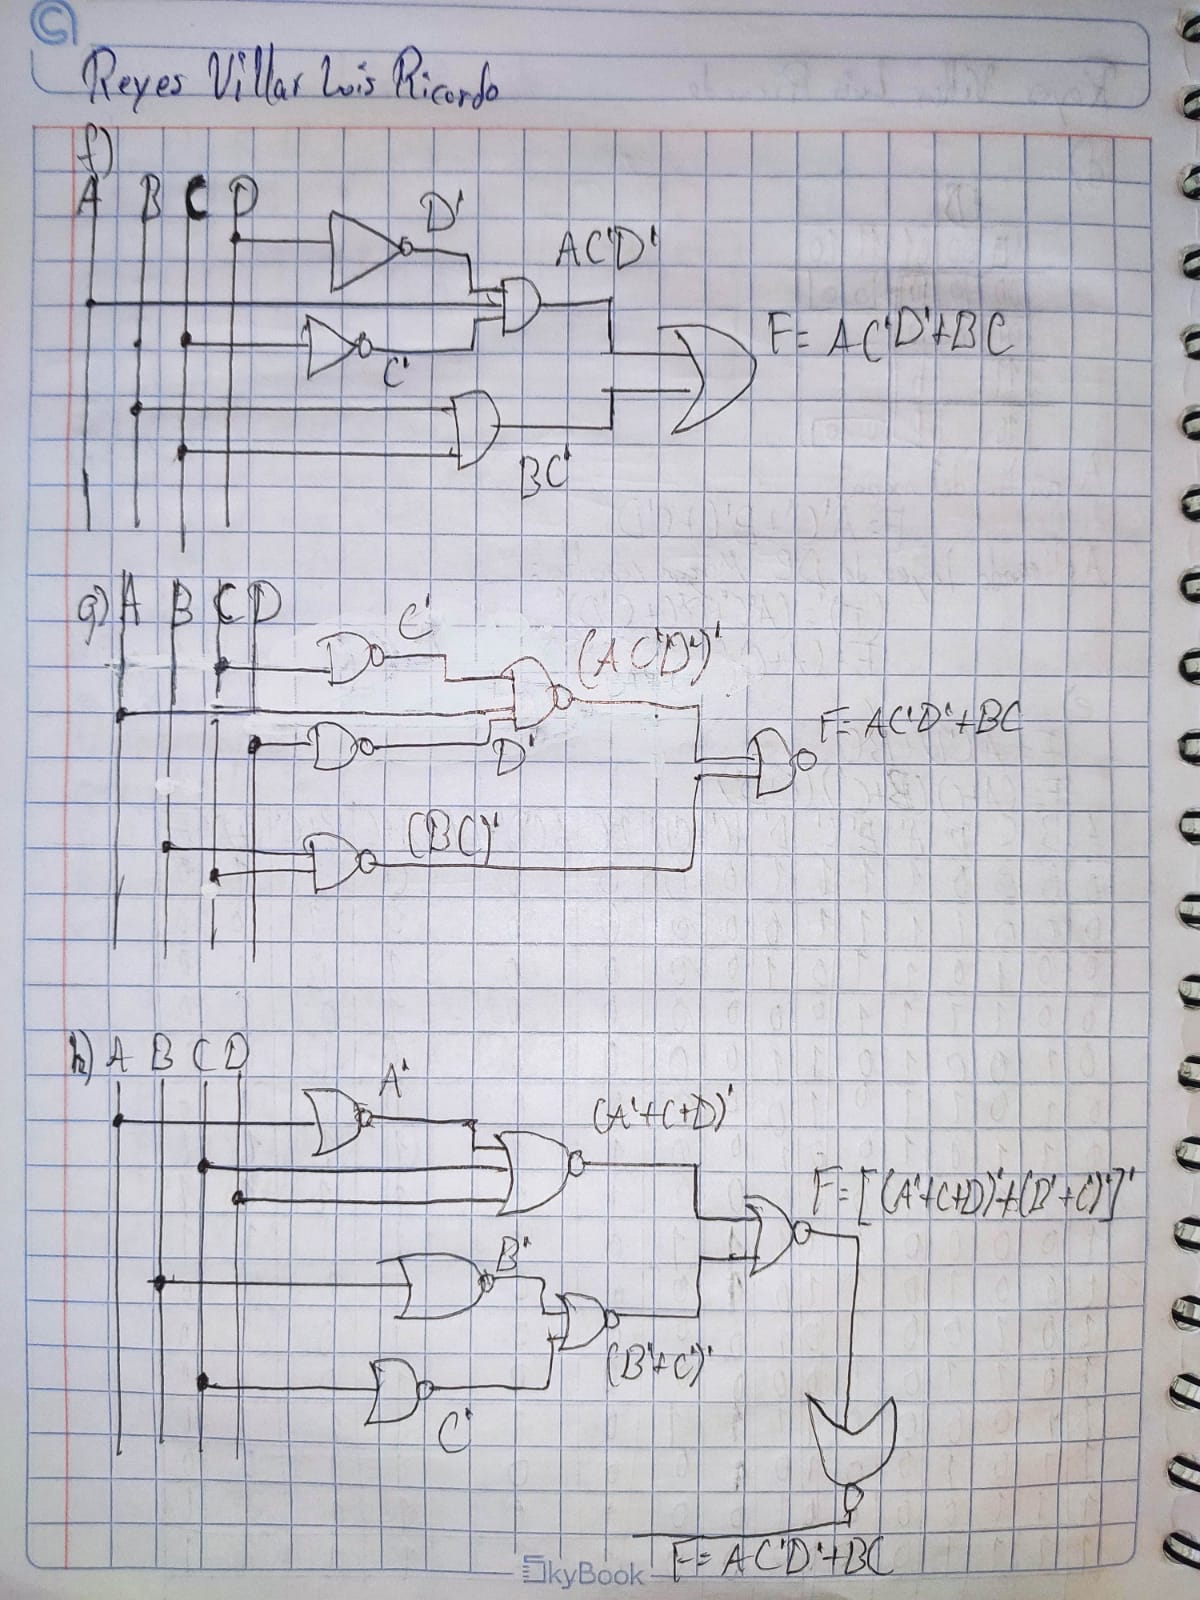 Reyes Villar Luis Ricardo
f)
A B C D
D'
AC'D'
F= AC'D'+BC
C'
BC'
g) A B C D
C'
(AC'D')'
F= AC'D'+BC
D'
(BC)'
h) A B C D
A'
(A'+C+D)'
F=[(A'+C+D)'+(B'+C')']'
B'
(B'+C')'
C'
F= AC'D'+BC
SkyBook